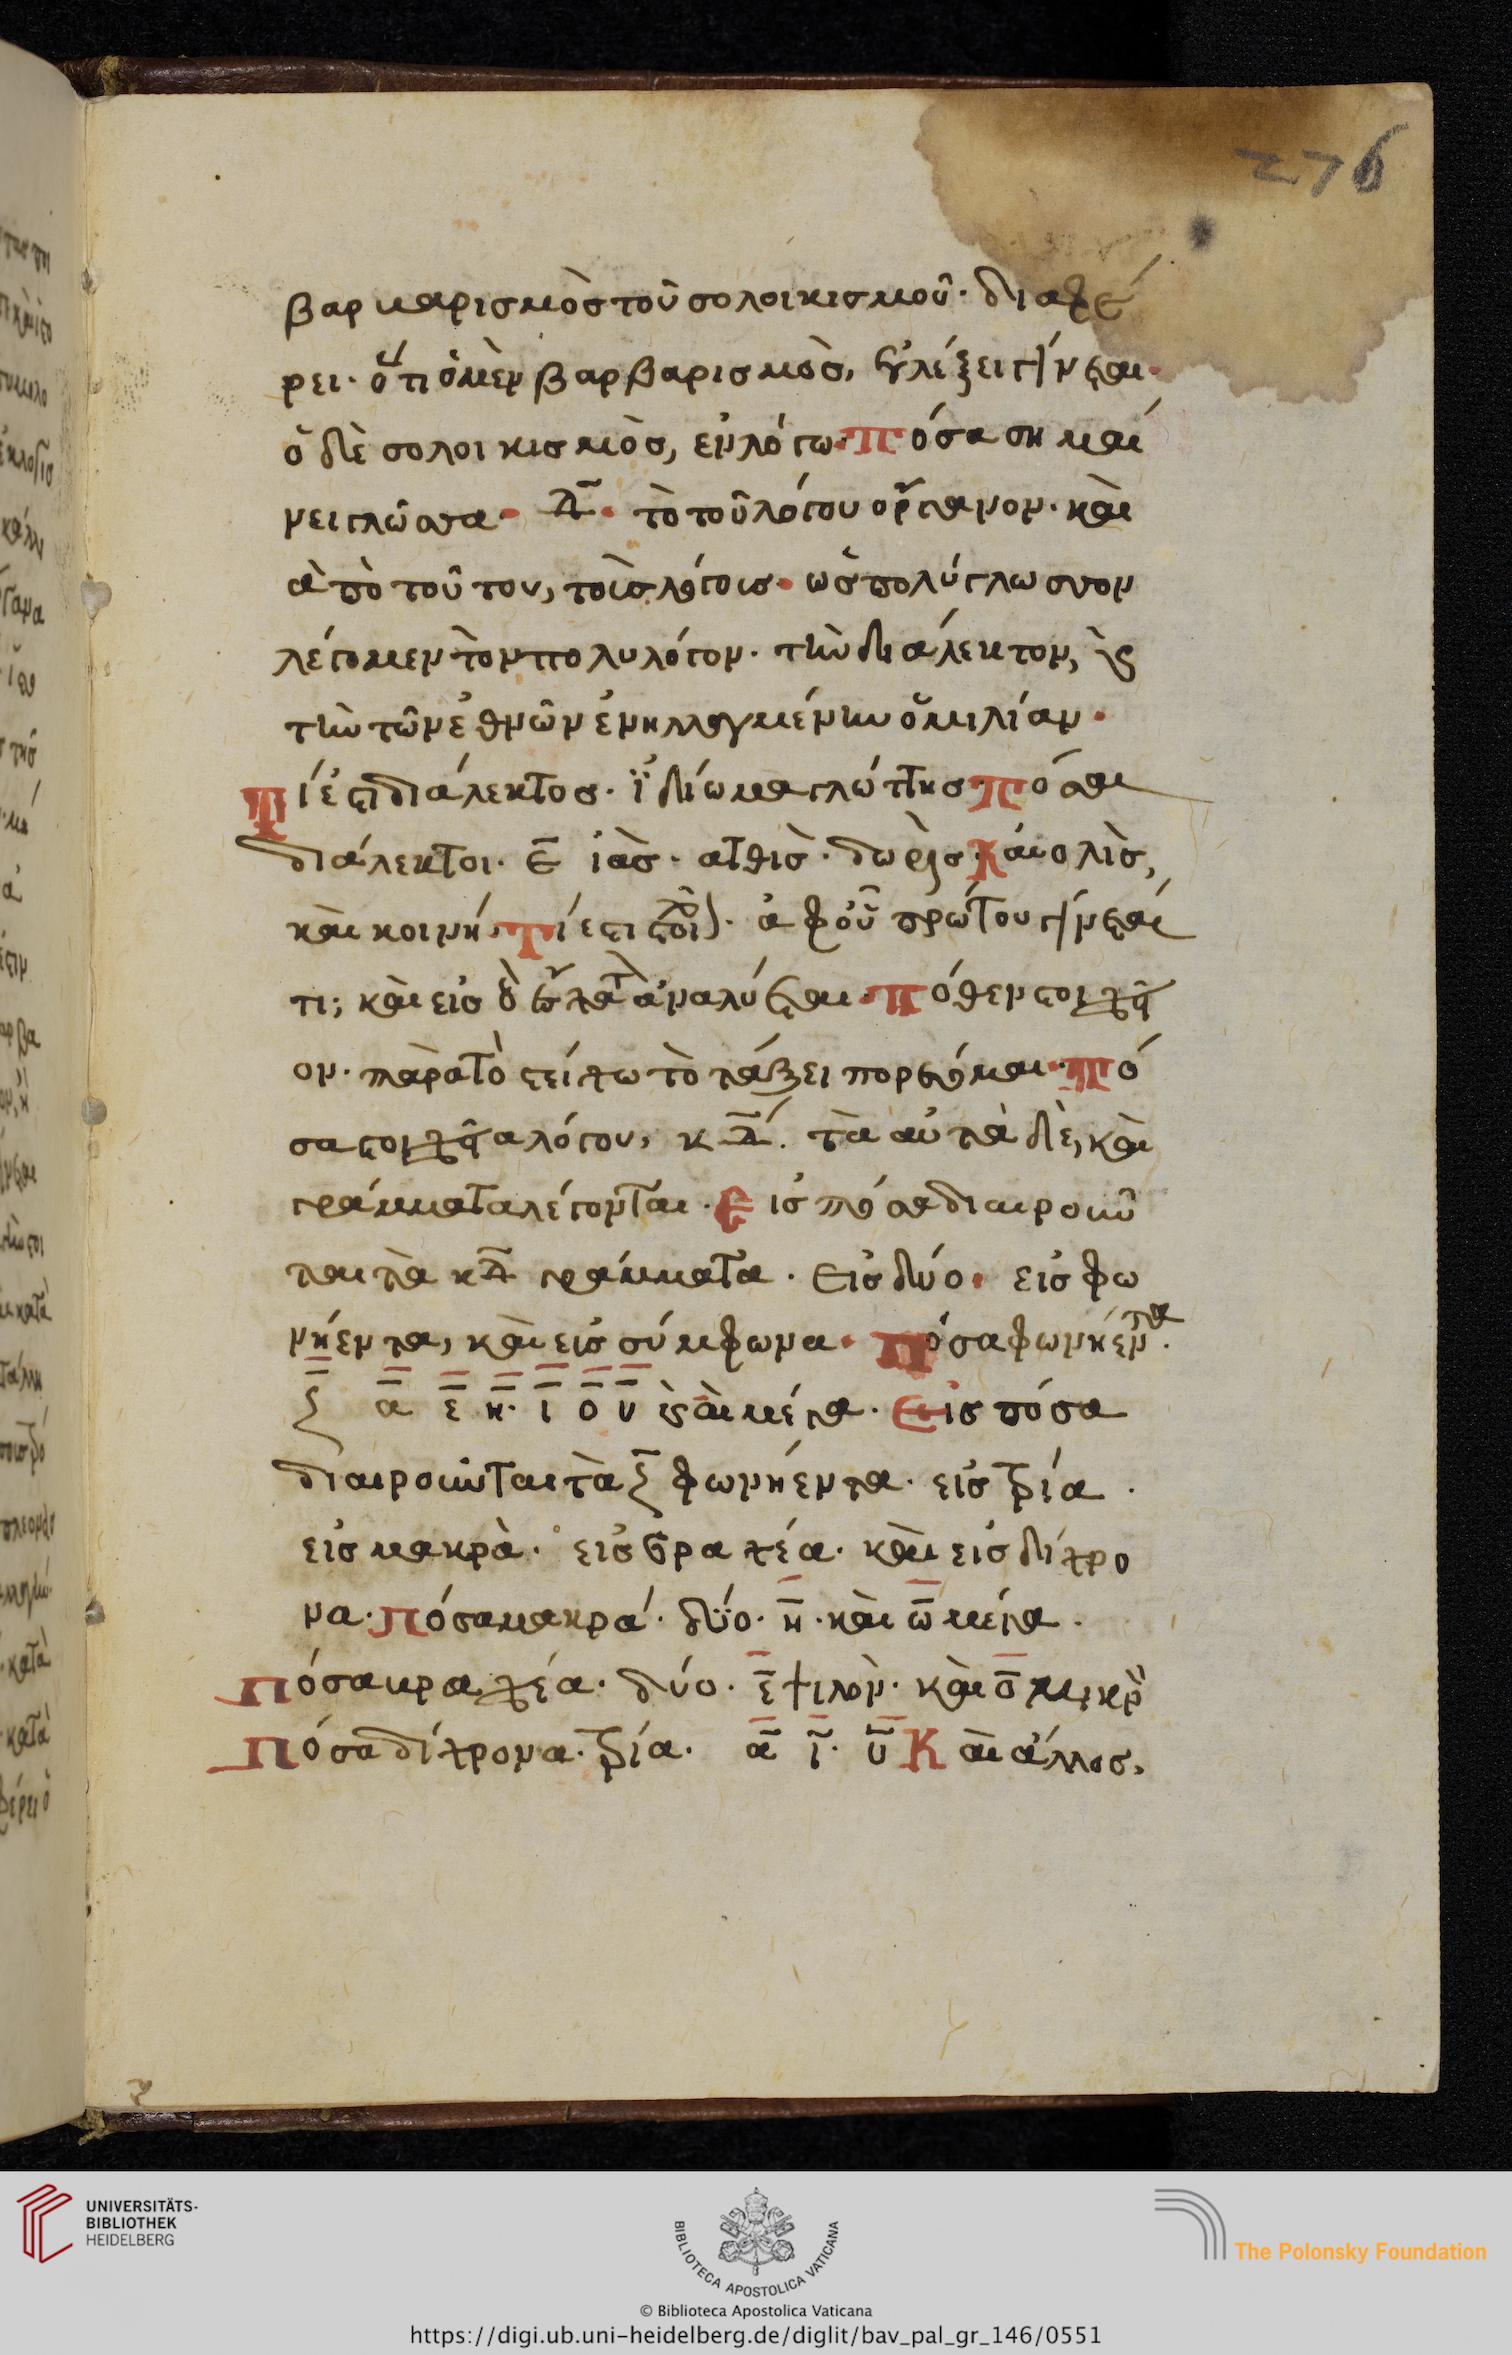 276
βαρβαρισμὸς τοῦ σολοικισμοῦ· διαφέ
ρει· ὅτι ὁ μὲν βαρβαρισμὸς, ἐν λέξει γίνεται·
ὁ δὲ σολοικισμὸς, ἐν λόγω· Πόσα σημαί
νει γλῶσσα· δ̅· τὸ τοῦ λόγου ὄργανον· καὶ
ἀπὸ τούτου, τοῖς λόγοις· ὡς πολύγλωσσον
λέγομεν τὸν πολυλόγον· τὴν διάλεκτον, καὶ
τὴν τῶν ἐθνῶν ἐνηλλαγμένην ὁμιλίαν·
Τί ἐστι διάλεκτος· ἰδίωμα γλώττης· Πόσαι
διάλεκτοι· ε̅ ἰὰς· ἀτθὶς· δωρὶς· Καὶ αἰολὶς,
καὶ κοινή· Τί ἐστι στοιχεῖον· ἀφ' οὗ πρώτου γίνεταί
τι; καὶ εἰς ὃ ἔσχατον ἀναλύεται· Πόθεν στοιχεῖ
ον· παρὰ τὸ στείχω τὸ τάξει πορεύομαι· Πό
σα στοιχεῖα λόγου, κ̅δ̅· τὰ αὐτὰ δὲ, καὶ
γράμματα λέγονται· Εἰς πόσα διαιροῦν
ται τὰ κ̅δ̅ γράμματα· Εἰς δύο· εἰς φω
νήεντα, καὶ εἰς σύμφωνα· Πόσα φωνήεντα·
ζ α̅ ε̅ η̅· ι̅ ο̅ υ̅ καὶ ω̅ μέγα· Εἰς πόσα
διαιροῦνται τὰ ζ̅ φωνήεντα· εἰς τρία·
εἰς μακρὰ· εἰς βραχέα· καὶ εἰς δίχρο
να· Πόσα μακρά· δύο· η̅· καὶ ω̅ μέγα·
Πόσα βραχέα· δύο· ε̅ ψιλὸν· καὶ ο̅ μικρὸν
Πόσα δίχρονα· τρία· α̅ ι̅· υ̅ Καὶ ἄλλως,
UNIVERSITÄTS-
BIBLIOTHEK
HEIDELBERG
BIBLIOTECA APOSTOLICA VATICANA
The Polonsky Foundation
© Biblioteca Apostolica Vaticana
https://digi.ub.uni-heidelberg.de/diglit/bav_pal_gr_146/0551